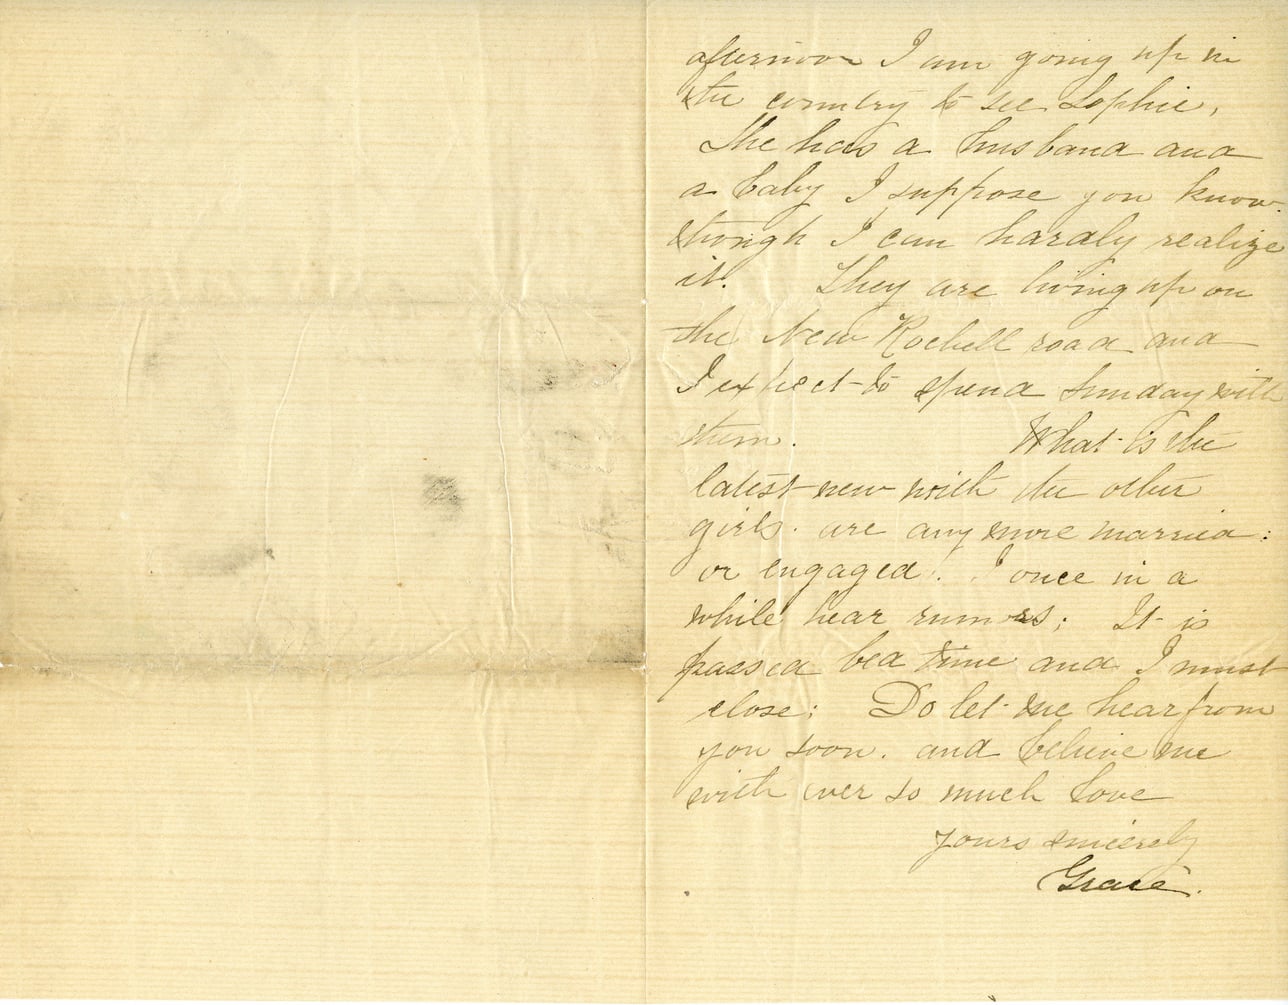 afternoon I am going up in
the country to see Sophie,
She has a husband and
a baby I suppose you know.
though I can hardly realize
it. They are living up on
the New Rochell road and
I expect to spend Sunday with
them. What is the
latest new with the other
girls. are any more married:
or engaged. I once in a
while hear rumors; It is
passed bed time and I must
close; Do let me hear from
you soon. and believe me
with ever so much love
Yours sincerely
Grace.